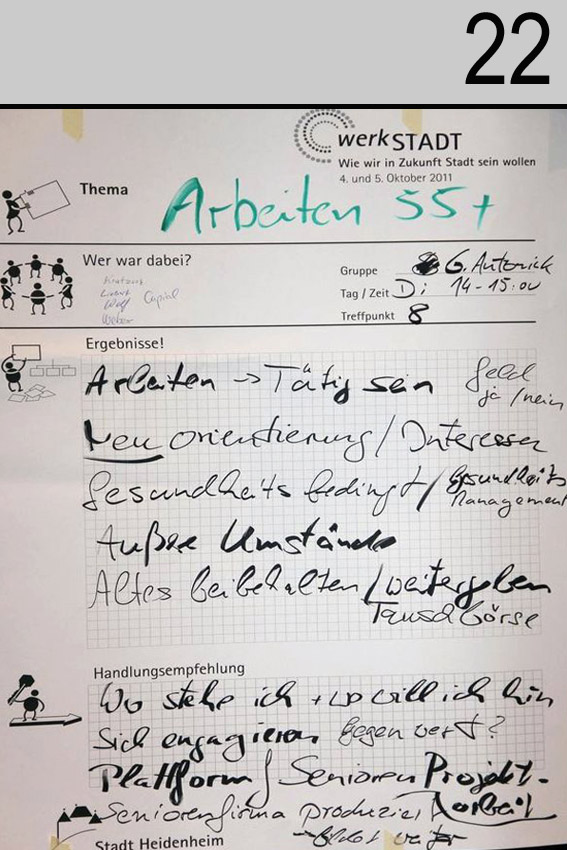 22
werkSTADT
Wie wir in Zukunft Stadt sein wollen
4. und 5. Oktober 2011
Thema
Arbeiten 55+
Wer war dabei?
Gruppe G. Auternick
Wolf Capriol
Weber
Tag / Zeit Di 14-15:00
Treffpunkt 8
Ergebnisse!
Arbeiten -> Tätig sein Geld
ja / nein
Neuorientierung / Interessen
Gesundheitsbedingt / Gesundheits
Management
Äußere Umstände
Altes beibehalten / weitergeben
Tauschbörse
Handlungsempfehlung
Wo stehe ich + wo will ich hin
Sich engagieren Gegenwert?
Plattform / Senioren Projekt-
arbeit
Seniorenfirma produziert
bildet weiter
Stadt Heidenheim